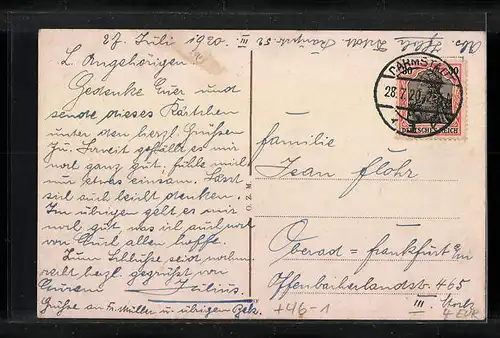 27. Juli 1920
L. Angehörigen!
Gedenke Euer und
sende dieses Kärtchen
unter den herzl. Grüßen
zu. Soweit gefällt es mir
noch ganz gut. fühle mich
nur etwas einsam. Lässt
sich auch leicht denken.
Im übrigen geht es mir
noch gut, was ich auch
von Euch allen hoffe.
Zum Schluße seid nochm.
recht herzl. gegrüßt von
Eurem Julius.
Grüße an Fr. Müller u. übrigen Bek.
O.Z.M.
DARMSTADT
28.7.20
DEUTSCHES REICH
Familie
Jean Flohr
Oberrad = Frankfurt a/m
Offenbacherlandstr. 465
III. Stock
+46-1
4 EUR